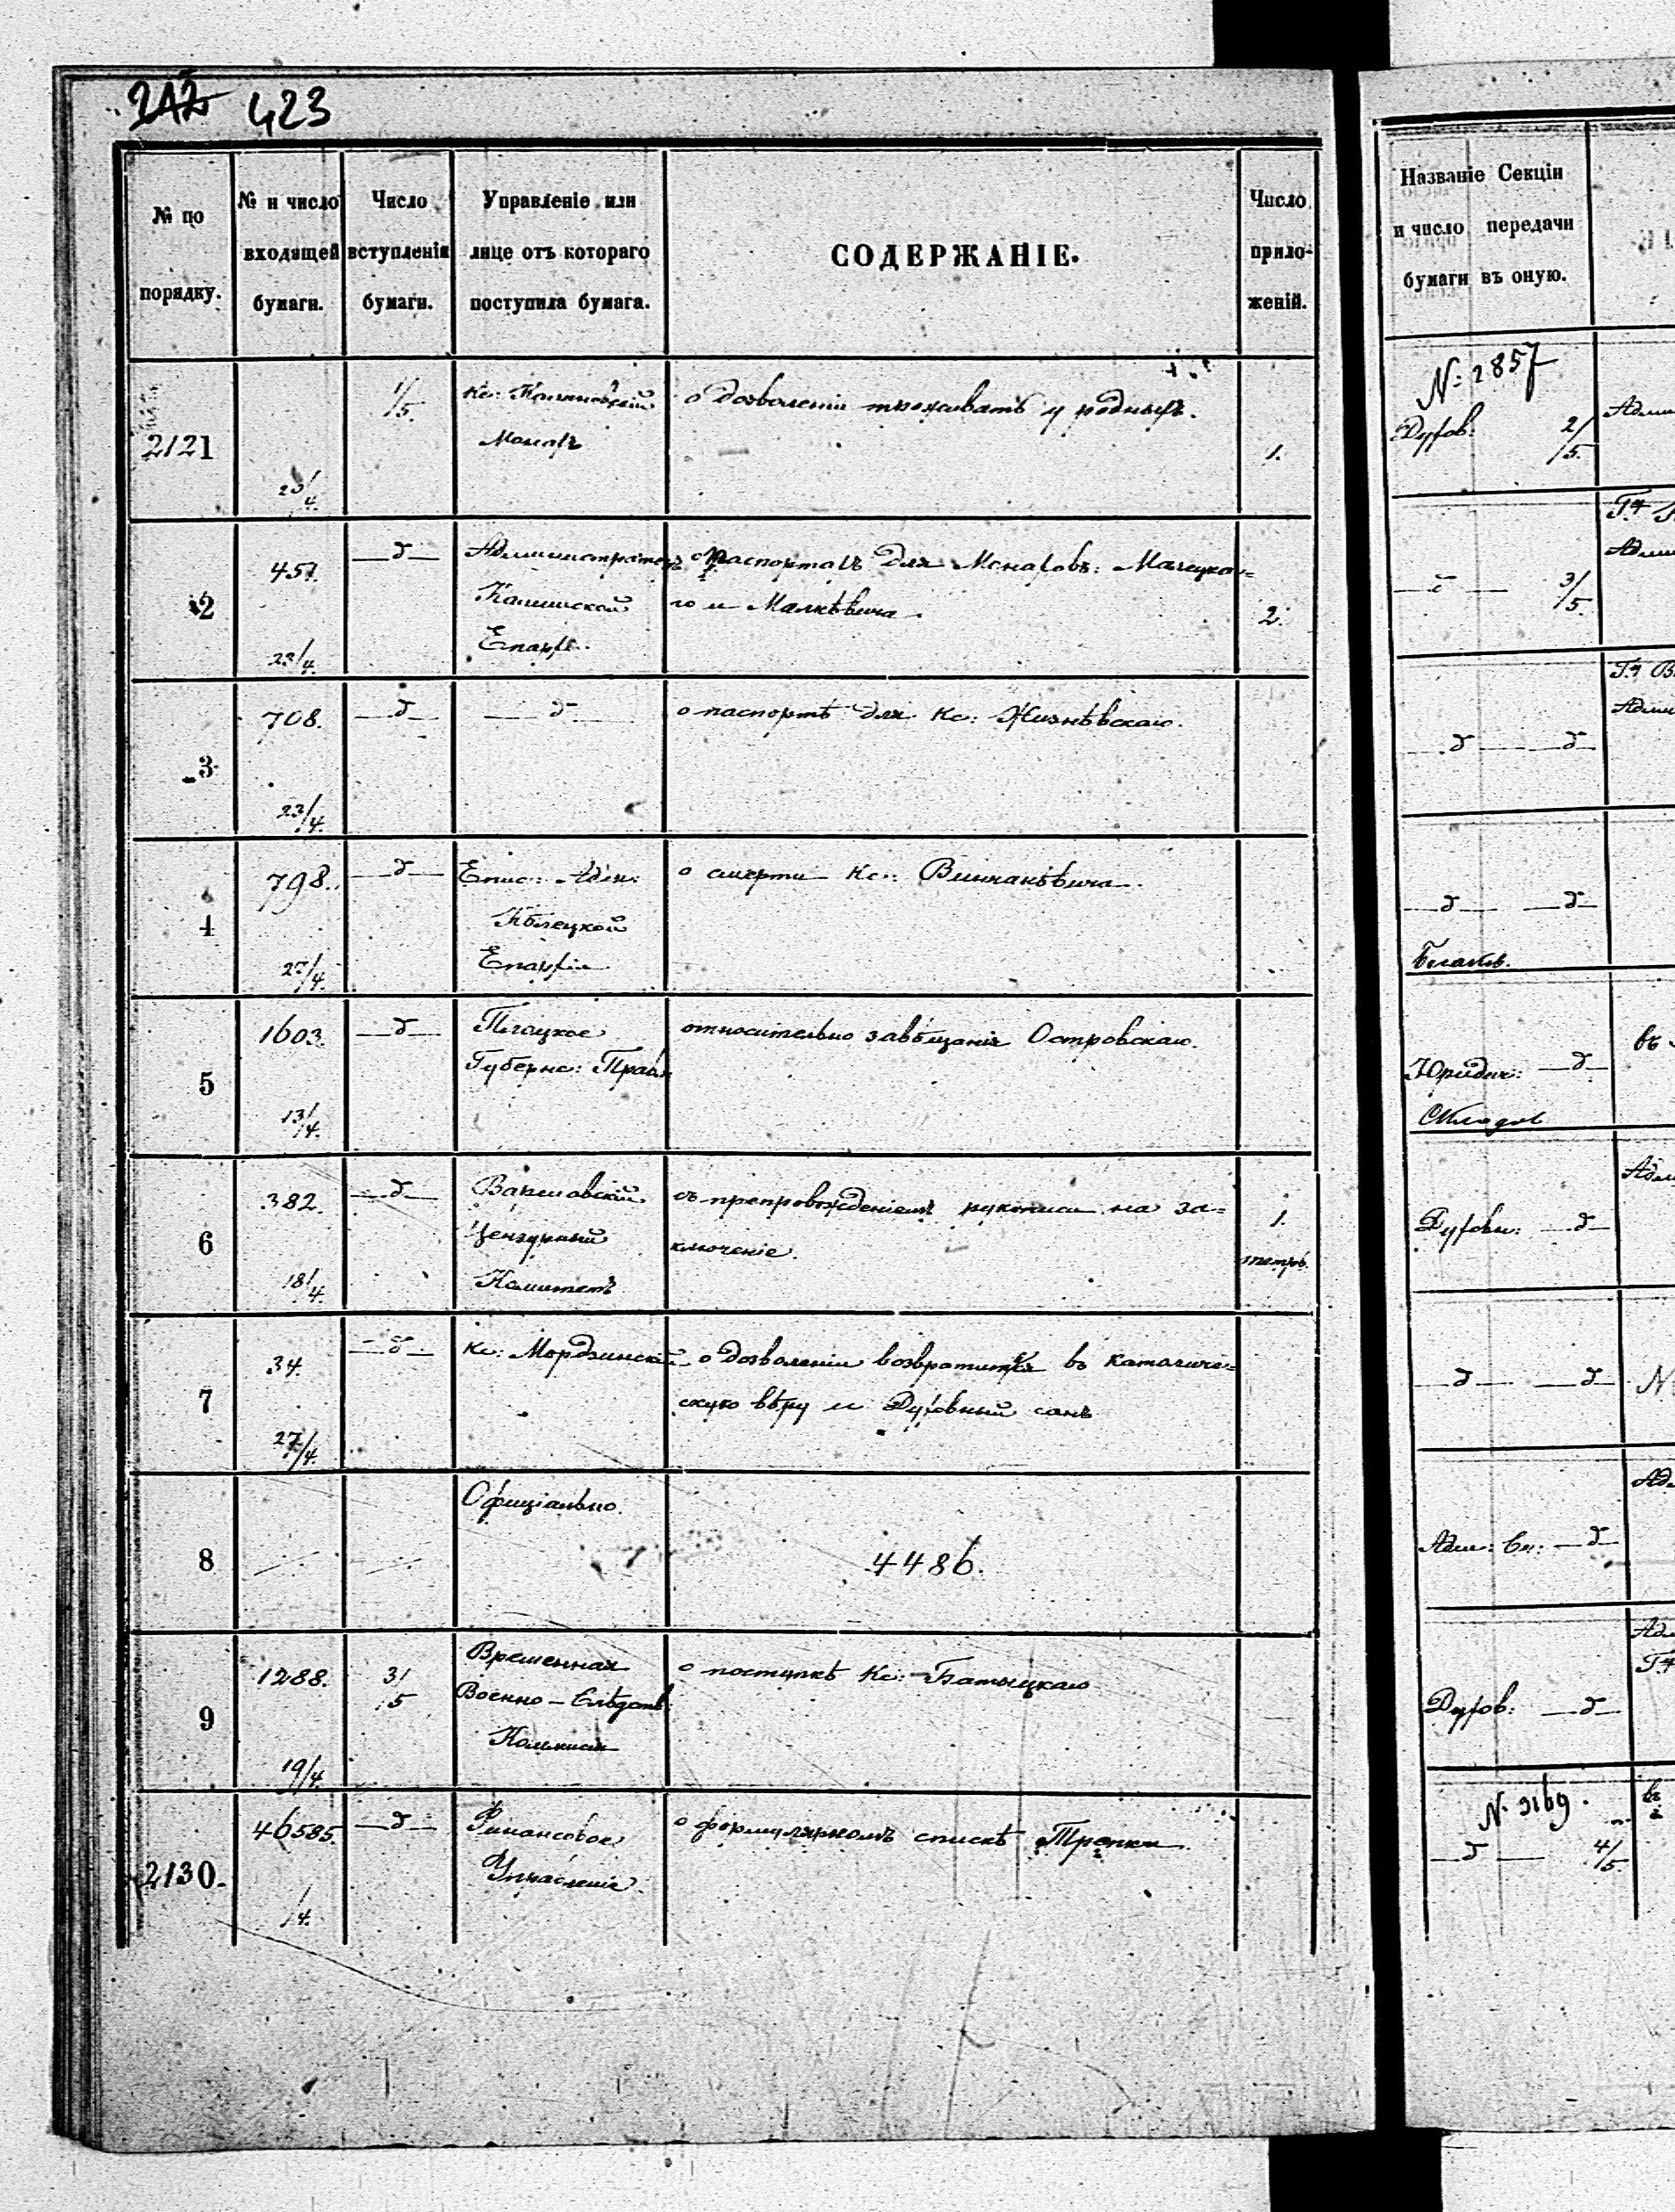 212 423
№ по порядку.
№ и число входящей бумаги.
Число вступленія бумаги.
Управленіе или лице отъ котораго поступила бумага.
СОДЕРЖАНІЕ.
Число приложеній.
2121
1/5
Кс:
Монахъ
о дозволеніи проживать у родныхъ.
1.
23/4.
2
457.
—д—
Администраторъ
Калишской
Епарх:
о паспортахъ для Монаховъ: Малецка=
го и Малкѣвича.
2.
23/4.
3
708.
—д—
—д—
о паспортѣ для Кс: Жизнѣвскаго.
23/4.
4
798.
—д—
Епис: Адм:
Кѣлецкой
Епархіи
о смерти Кс:
27/4.
5
1603.
—д—
Плоцкое
Губернс: Правл
относительно завѣщанія Островскаго.
13/4.
6
382.
—д—
Варшавскій
Цензурный
Комитетъ
съ препровожденіемъ рукописи на за=
ключеніе.
1.
18/4.
7
34.
—д—
Кс: Мордзинскій
о дозволеніи возвратиться въ католиче=
скую вѣру и Духовный санъ
27/4.
8
Офиціально.
4486.
9
1288.
3/5
Временная
Военно-Слѣдств.
Коммисія
о поступкѣ Кс: Батыцкаго
19/4.
2130.
46585.
—д—
Финансовое
Управленіе.
о формулярномъ спискѣ Трепки.
/4.
Названіе Секціи
и число передачи
бумаги въ оную.
№: 2857
Духов: 2/5.
—д— 3/5.
—д— —д—
—д— —д—
Юридич: —д—
Духовн: —д—
—д— —д—
—д—
Духов: —д—
№ 3169.
—д— 4/5.